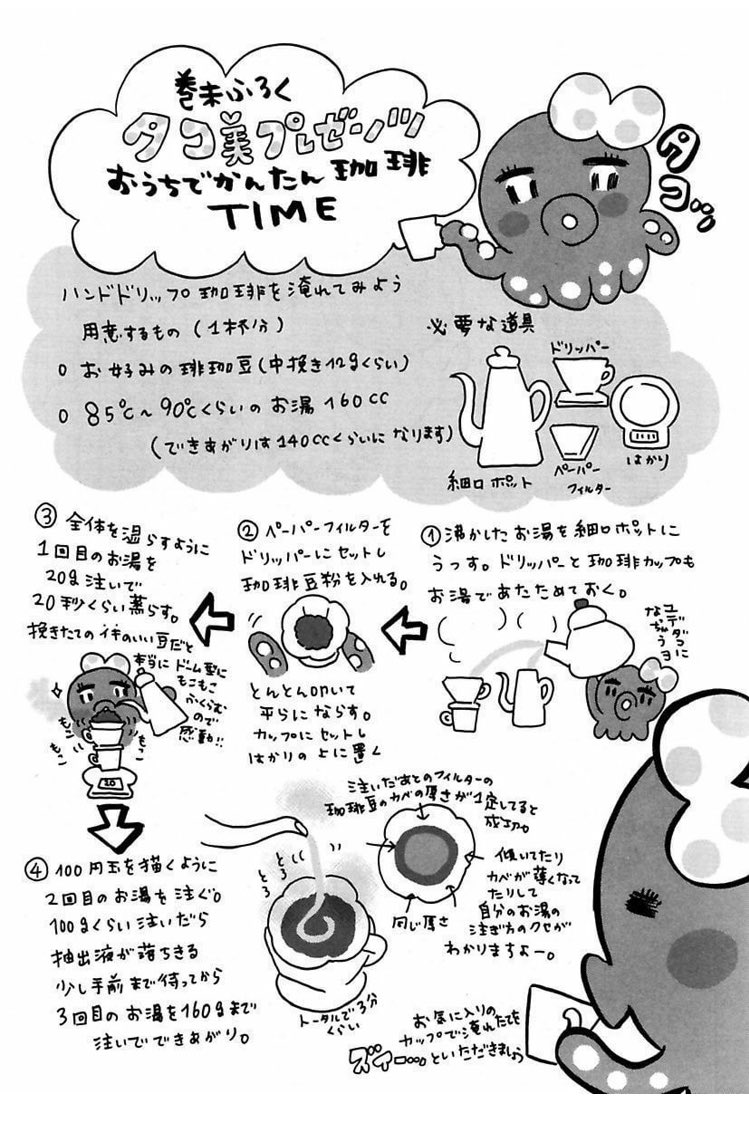 巻末ふろく
タコ美プレゼンツ
おうちでかんたん珈琲
TIME
タコッ
ハンドドリップ珈琲を淹れてみよう
用意するもの(1杯分)
o お好みの琲珈豆(中挽き12gくらい)
o 85℃〜90℃くらいのお湯160cc
(できあがりは140ccくらいになります)
必要な道具
ドリッパー
細口ポット
ペーパー
フィルター
はかり
①沸かしたお湯を細口ポットに
うつす。ドリッパーと珈琲カップも
お湯であたためておく。
ユデダコに
なっちゃうヨ
②ペーパーフィルターを
ドリッパーにセットし
珈琲豆粉を入れる。
とんとん叩いて
平らにならす。
カップにセットし
はかりの上に置く
③全体を湿らすように
1回目のお湯を
20g注いで
20秒くらい蒸らす。
挽きたてのイキのいい豆だと
本当にドーム型に
もこもこ
ふくらむ
ので
感動!!
もこ
もこ
20
④100円玉を描くように
2回目のお湯を注ぐ。
100gくらい注いだら
抽出液が落ちきる
少し手前まで待ってから
3回目のお湯を160gまで
注いでできあがり。
とろ
とろ
トータルで3分
くらい
注いだあとのフィルターの
珈琲豆のカベの厚さが1定してると
成功。
同じ厚さ
傾いてたり
カベが薄くなって
たりして
自分のお湯の
注ぎ方のクセが
わかりますよー。
お気に入りの
カップで淹れたてを
ズズィー…といただきましょう